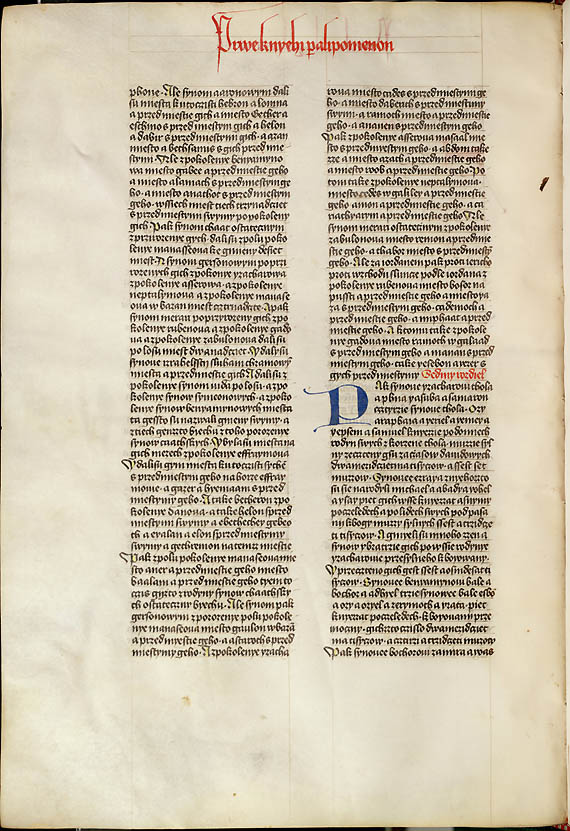 Prwe knyehi palipomenon
phone · Ale synom aaronowym dali
su miesta k utocisti hebron a lobna
a przedmiestie gich a miesto Gether a
esthmo s przedmiestym gich a helon
a dabir s przedmiestimi gich · a azan
miesto a bethsames s gich przedmie
stimi · Ale z pokolenye benyamyno
wa miesto gabee a przedmiestie geho
a miesto almach s przedmiestym ge
ho · a miesto anathot s przedmiestym
geho · wssiech miest tiech trzynadcte
s przedmiestim swymy po pokoleny
gich · Pak synom chaat ostatecznym
z przirozenye gich · dali su z polu poko
lenye manasseowa k gmieny deset
miest · A synom gersonowym po przi
rozenych gich z pokolenye yzacharowa
z pokolenye asserowa · a z pokolenye
neptalymowa a z pokolenye manasse
owa w bazan miest trzinadcte · A pak
synom merari po przyrozenych gich z po
kolenye rubenowa a z pokolenye gado
wa a z pokolenye zabulonowa dali su
po losu miest dwanadcte · Y dali su
synowe izrahelssti sluham chramowym
miesta y przedmiestie gich · A dali su z
pokolenye synom iuda po losu · a z po
kolenye synow symeonowych · a z poko
lenye synow benyamynowych miesta
ta gessto su nazwali gmeny swymy · a
z tiech genz to biechu z toho pororzenye
synow caathskych · Y byla su miesta na
gich mezech z pokolenye effraymowa
Y dali su gym miesta k utocisti sychem
s przedmiestym geho na horze effray
mowie · a gazer a hyemaam s przed
miestymy geho · A take bethoron z po
kolenye danowa · a take helon s przed
miestym swymy a ebethecher gebeo
th a eyalan a elon s przedmiestymy
swymy a gethremon na tenz miestie
Pak z polu pokolenye manasseowa mie
sto aner a przedmiestie geho a miesto
baalam a przedmiestie geho tyem to
czas gimz to z rodyny synow chaathsky
ch ostateczny byechu · Ale synom pak
gersonowym z pororzenye polu pokole
nye manaseowa miesto gaulon w bazan
a przedmiestie geho · a astaroth s przed
miestymy geho · A z pokolenye yzacha
rowa miesto cades s przedmiestym ge
ho · a miesto dabereth s przedmiestimy
swymi · a ramoth miesto a przedmiestie
geho · a ananem s przedmiestym geho
Pak z pokolenye asserowa masaal mie
sto s przedmiestym geho · a abdom take
zze a miesto azach a przedmiestie geho
a miesto roob a przedmiestie geho · Po
tom take z pokolenye neptalymowa ·
miesto cedes w galilei a przedmiestie
geho amon a przedmiestie geho · a ca
riathyarym a przedmiestie geho · Ale
synom merari ostatecznym z pokolenye
zabulonowa miesto remon a przedmie
stie geho · a thabor miesto s przedmiestym
geho · Ale za iordanem pak proti iericho
proti wzchodu slunce podle iordana z
pokolenye rubenowa miesto bosor na
pussti a przedmiestie geho a miesto ya
za s przedmiestym geho · cademoth a
przedmiestie geho · a miphaat a przed
miestie geho · A k tomu take z pokole
nye gadowa miesto ramoth w galaad
s przedmiestym geho a manaim s przed
miestym geho · take yesebon a yezer s
gich przedmiestymy · Sedmy rozdiel
Pak synowe yzacharowi thola
a phua yasub a samaron
cztyrzie synowe thola · Ozy
a raphaia a yeriel a yemay a
yepsem a samuel knyezie po domech
rodyn swych z korzene thola · muzie syl
ny zecteny gsu za czasow dauidowych
dwamezcietma tisycow · a ssest set
muzow · Synowe ezray a z nyehoz to
su sie narodyli michael a abadya yohel
a yesya piet gich wsse knyezat a s nymy
po czeledech a po lidech swych podpasa
ni k bogy muzy sylnych ssest a tzridcze
ti tisycow · A gmieli su mnoho zen a
synow y bratrzie gich po wssie rodynye
yzacharowie przesylneho k bogowany ·
Y przecteno gich gest ssest a osmdesat ti
sycow · Synowee benyamynowi bale a
bochor a adyhel trzie synowee bale esbo
a ozy a ozyel a yerymoth a yrai a · piet
knyezat po czeledech · k bogowany prze
mocny · gichz to czislo dwamezcietma
ma tisycow · a cztyrzi a tzridceti muzow
Pak synowe bochorowi zamira a yoas